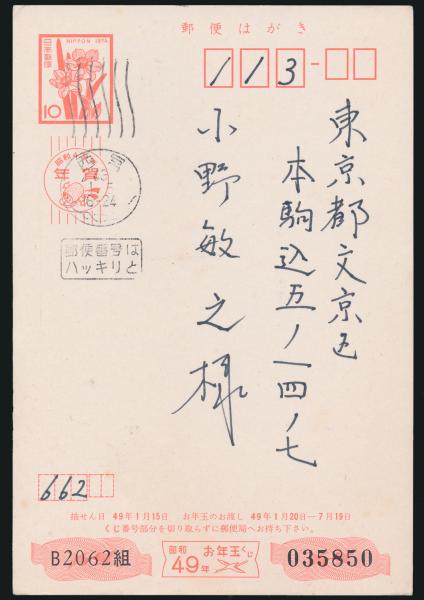 郵便はがき
NIPPON 1974
日本郵便
10
113
東京都文京区
本駒込五ノ一四ノ七
小野敏之様
年賀
西宮
郵便番号は
ハッキリと
662
抽せん日 49年1月15日 お年玉のお渡し 49年1月20日―7月19日
くじ番号部分を切り取らずに郵便局へお持ち下さい。
B2062組
昭和49年
お年玉くじ
035850